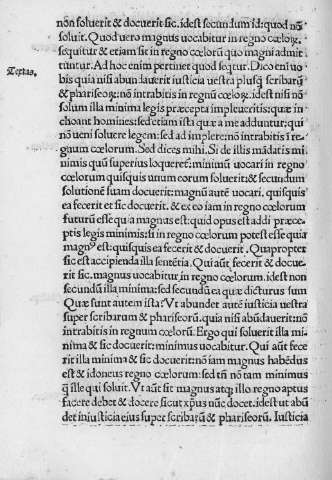 non soluerit & docuerit sic. idest secundum id: quod nõ
soluit. Quod uero magnus uocabitur in regno cœloꝝ.
sequitur & etiam sit in regno cœlorũ quo magni admit
tuntur. Ad hoc enim pertinet quod seqtur. Dico eni uo
Textus.
bis quia nisi abundauerit iusticia uestra plusq̃ scribarũ
& phariseoꝝ: nõ intrabitis in regnũ cœloꝝ. idest nisi nõ
solum illa minima legis præcepta impleueritis: quæ in
choant homines: sed etiam ista quæ a me adduntur: qui
nõ ueni soluere legem: sed ad implere: nõ intrabitis ĩ re-
gnum cœlorum. Sed dices mihi. Si de illis mãdatis mi
nimis quũ superius loqueret̃: minimũ uocari in regno
cœlorum quisquis unum eorum soluerit: & secundum
solutionẽ suam docuerit: magnũ autẽ uocari. quisquis
ea fecerit et sic docuerit. & ex eo iam in regno cœlorum
futurũ esse quia magnus est: quid opus est addi præce-
ptis legis minimis: si in regno cœlorum potest esse quia
magnꝰ est: quisquis ea fecerit & docuerit. Quapropter
sic est accipienda illa sentẽtia. Qui aũt fecerit & docue-
rit sic. magnus uocabitur in regno cœlorum. idest non
secundũ illa minima: sed secundũ ea quæ dicturus sum
Quæ sunt autem ista: Vt abundet autẽ iusticia uestra
super scribarum & phariseorũ. quia nisi abũdauerit: nõ
intrabitis in regnum cœlorũ. Ergo qui soluerit illa mi-
nima & sic docuerit: minimus uocabitur. Qui aũt fece
rit illa minima & sic docuerit: nõ iam magnus habẽdus
est & idoneus regno cœlorum: sed tñ nõ tam minimus
q̃ ille qui soluit. Vt aũt sit magnus atqꝫ illo regno aptus
facere debet & docere sicut xp̃us nũc docet. idest ut abũ
det in iusticia eius super scribarũ & phariseorũ. Iusticia